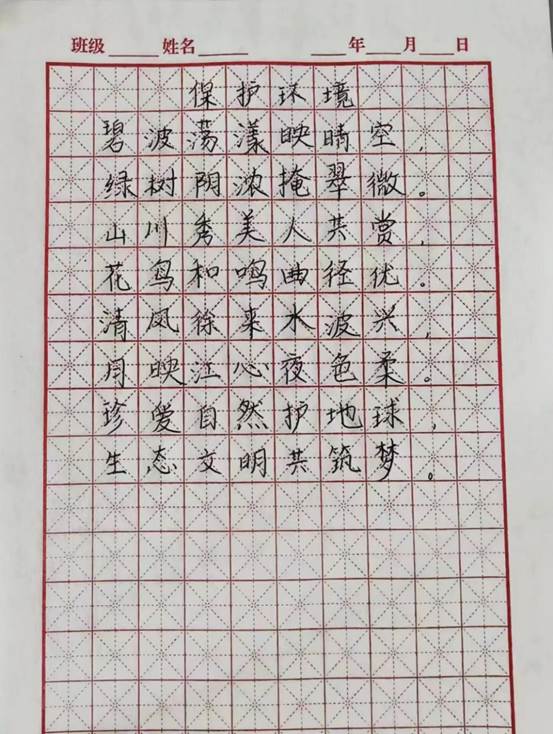 班级______姓名______ ____年____月____日
保护环境
碧波荡漾映晴空，
绿树阴浓掩翠微。
山川秀美人共赏，
花鸟和鸣曲径优。
清风徐来水波兴，
月映江心夜色柔。
珍爱自然护地球，
生态文明共筑梦。